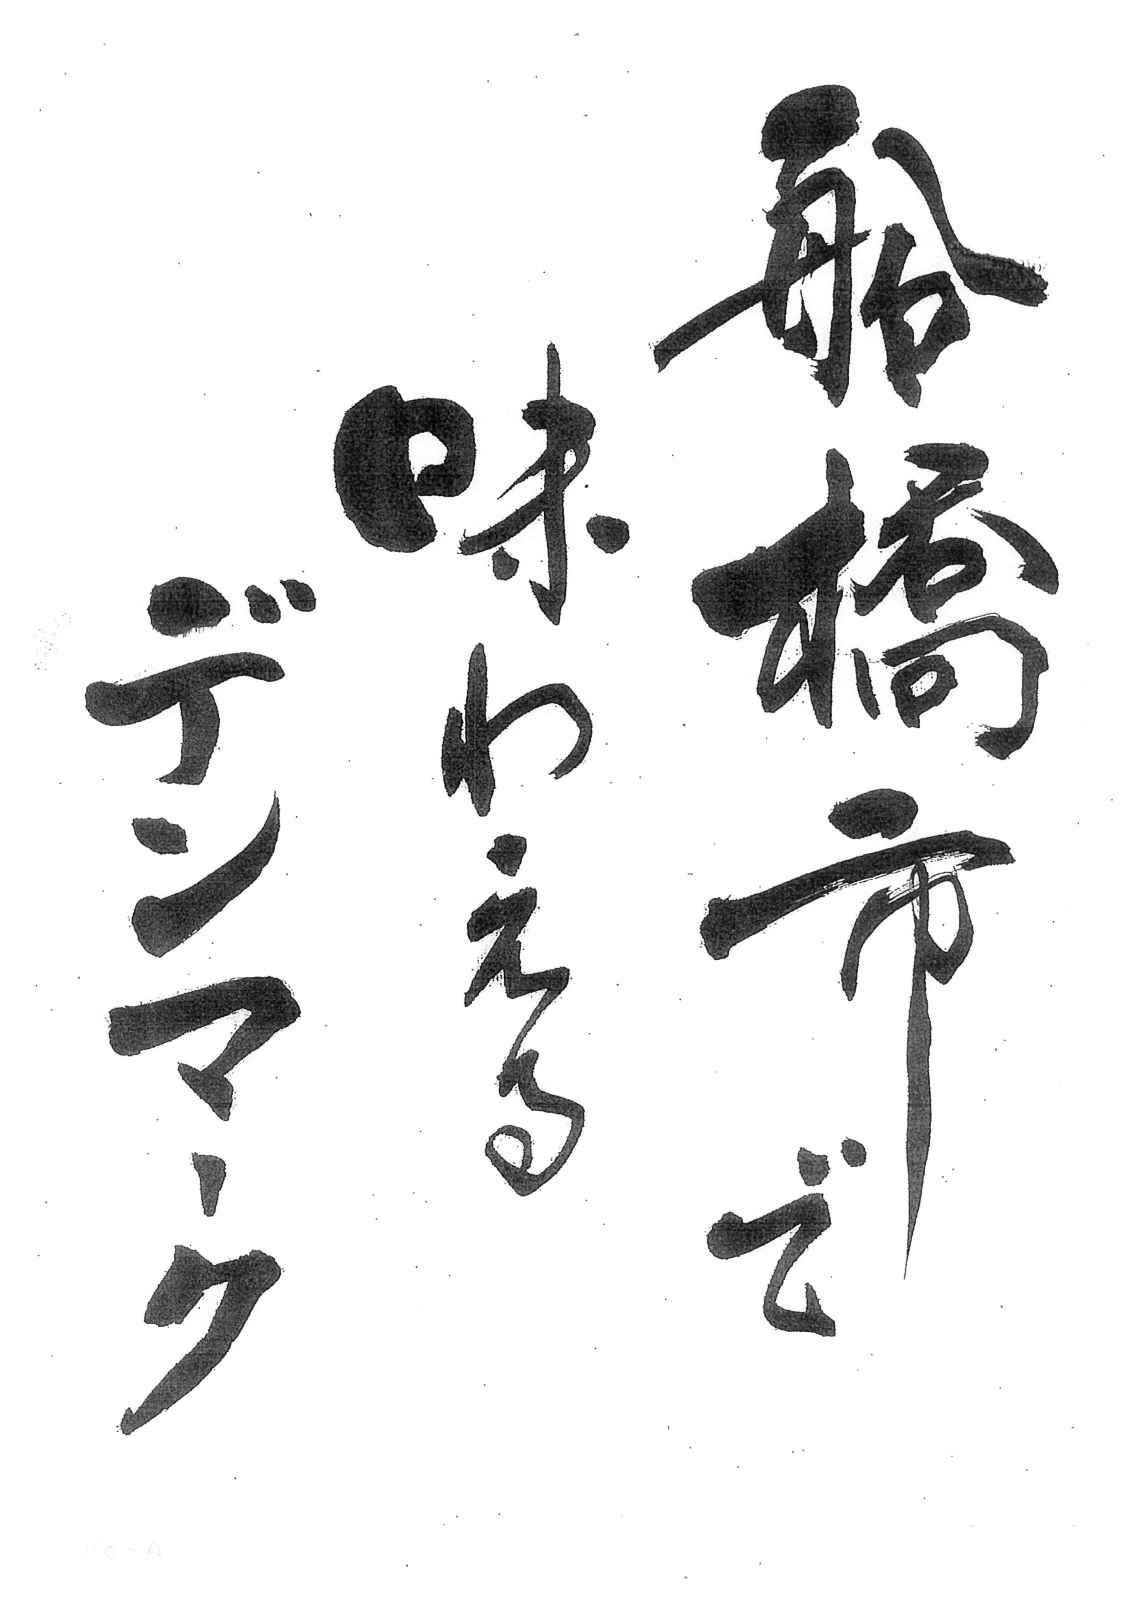 船橋市で
味わえる
デンマーク